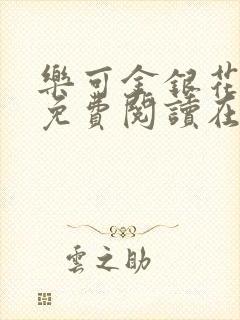 樂可金銀花
免費閱讀在
雲之助